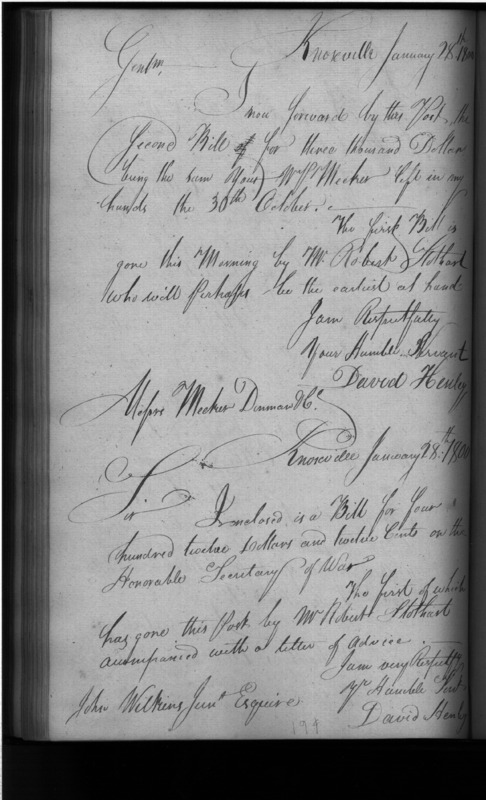 Knoxville January 28th 1800
Gentm,
I now forward by this Post, the
Second Bill of for three thousand Dollars
being the sum Your Mr Meeker left in my
hands the 30th October. —
The first Bill is
gone this Morning by Mr. Robert Stothart
who will Perhaps be the earliest at hand
I am Respectfully
Your Humble Servant
David Henley
Messrs Meeker Denman & Co.
Knoxville January 28th 1800
Sir
Inclosed is a Bill for Four
hundred twelve Dollars and twelve Cents on the
Honorable Secretary of War
The first of which
has gone this Post by Mr Robert Stothart
accompanied with a letter of advice. —
I am very Respectfy
Yr Humble Servt
John Wilkins Junr Esquire
David Henley
194